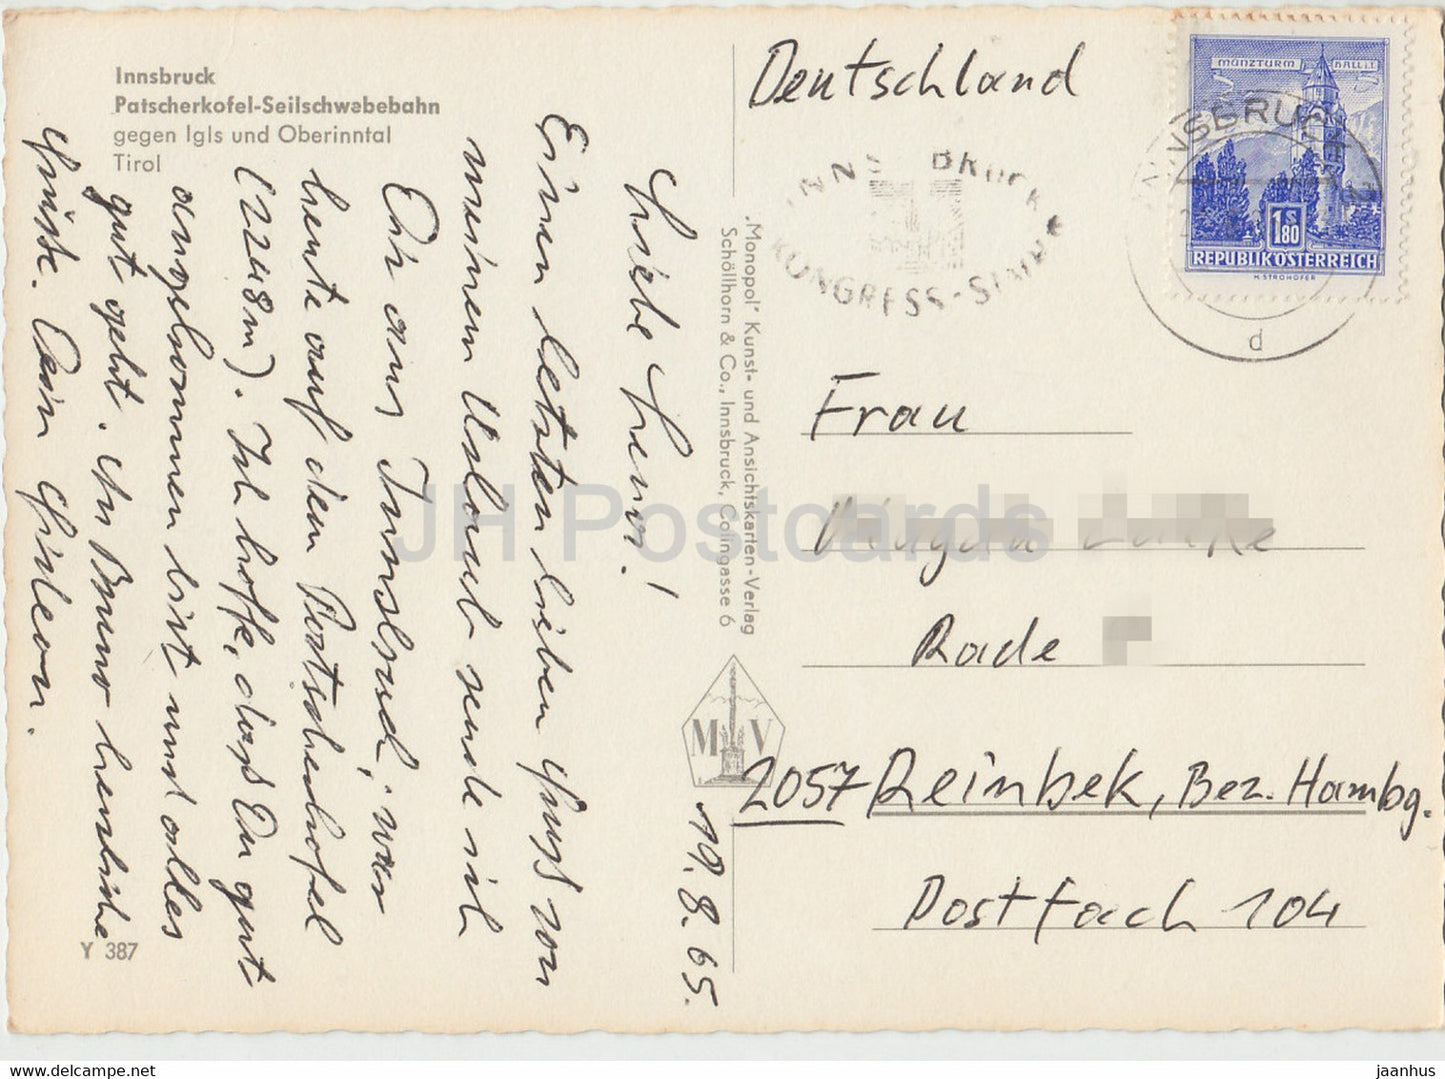 Innsbruck
Patscherkofel-Seilschwebebahn
gegen Igls und Oberinntal
Tirol
19. 8. 65.
Einen letzten lieben Gruß von
meinen Urlaub sende ich
Dir aus Innsbruck, war
heute auf dem Patscherkofel
(2248m). Ich hoffe, daß Du gut
angekommen bist und alles
gut geht. An Bruno herzliche
Grüße. Dein
Y 387
"Monopol" Kunst- und Ansichtskarten-Verlag
Schöllhorn & Co., Innsbruck, Colingasse 6
M V
Deutschland
INNSBRUCK
KONGRESS-STADT
INNSBRUCK
d
MÜNZTURM HALL i.T.
S
1.80
REPUBLIK ÖSTERREICH
H. STROHOFER
Frau
Rade
2057 Reinbek, Bez. Hambg.
Postfach 104
JH Postcards
www.delcampe.net
jaanhus